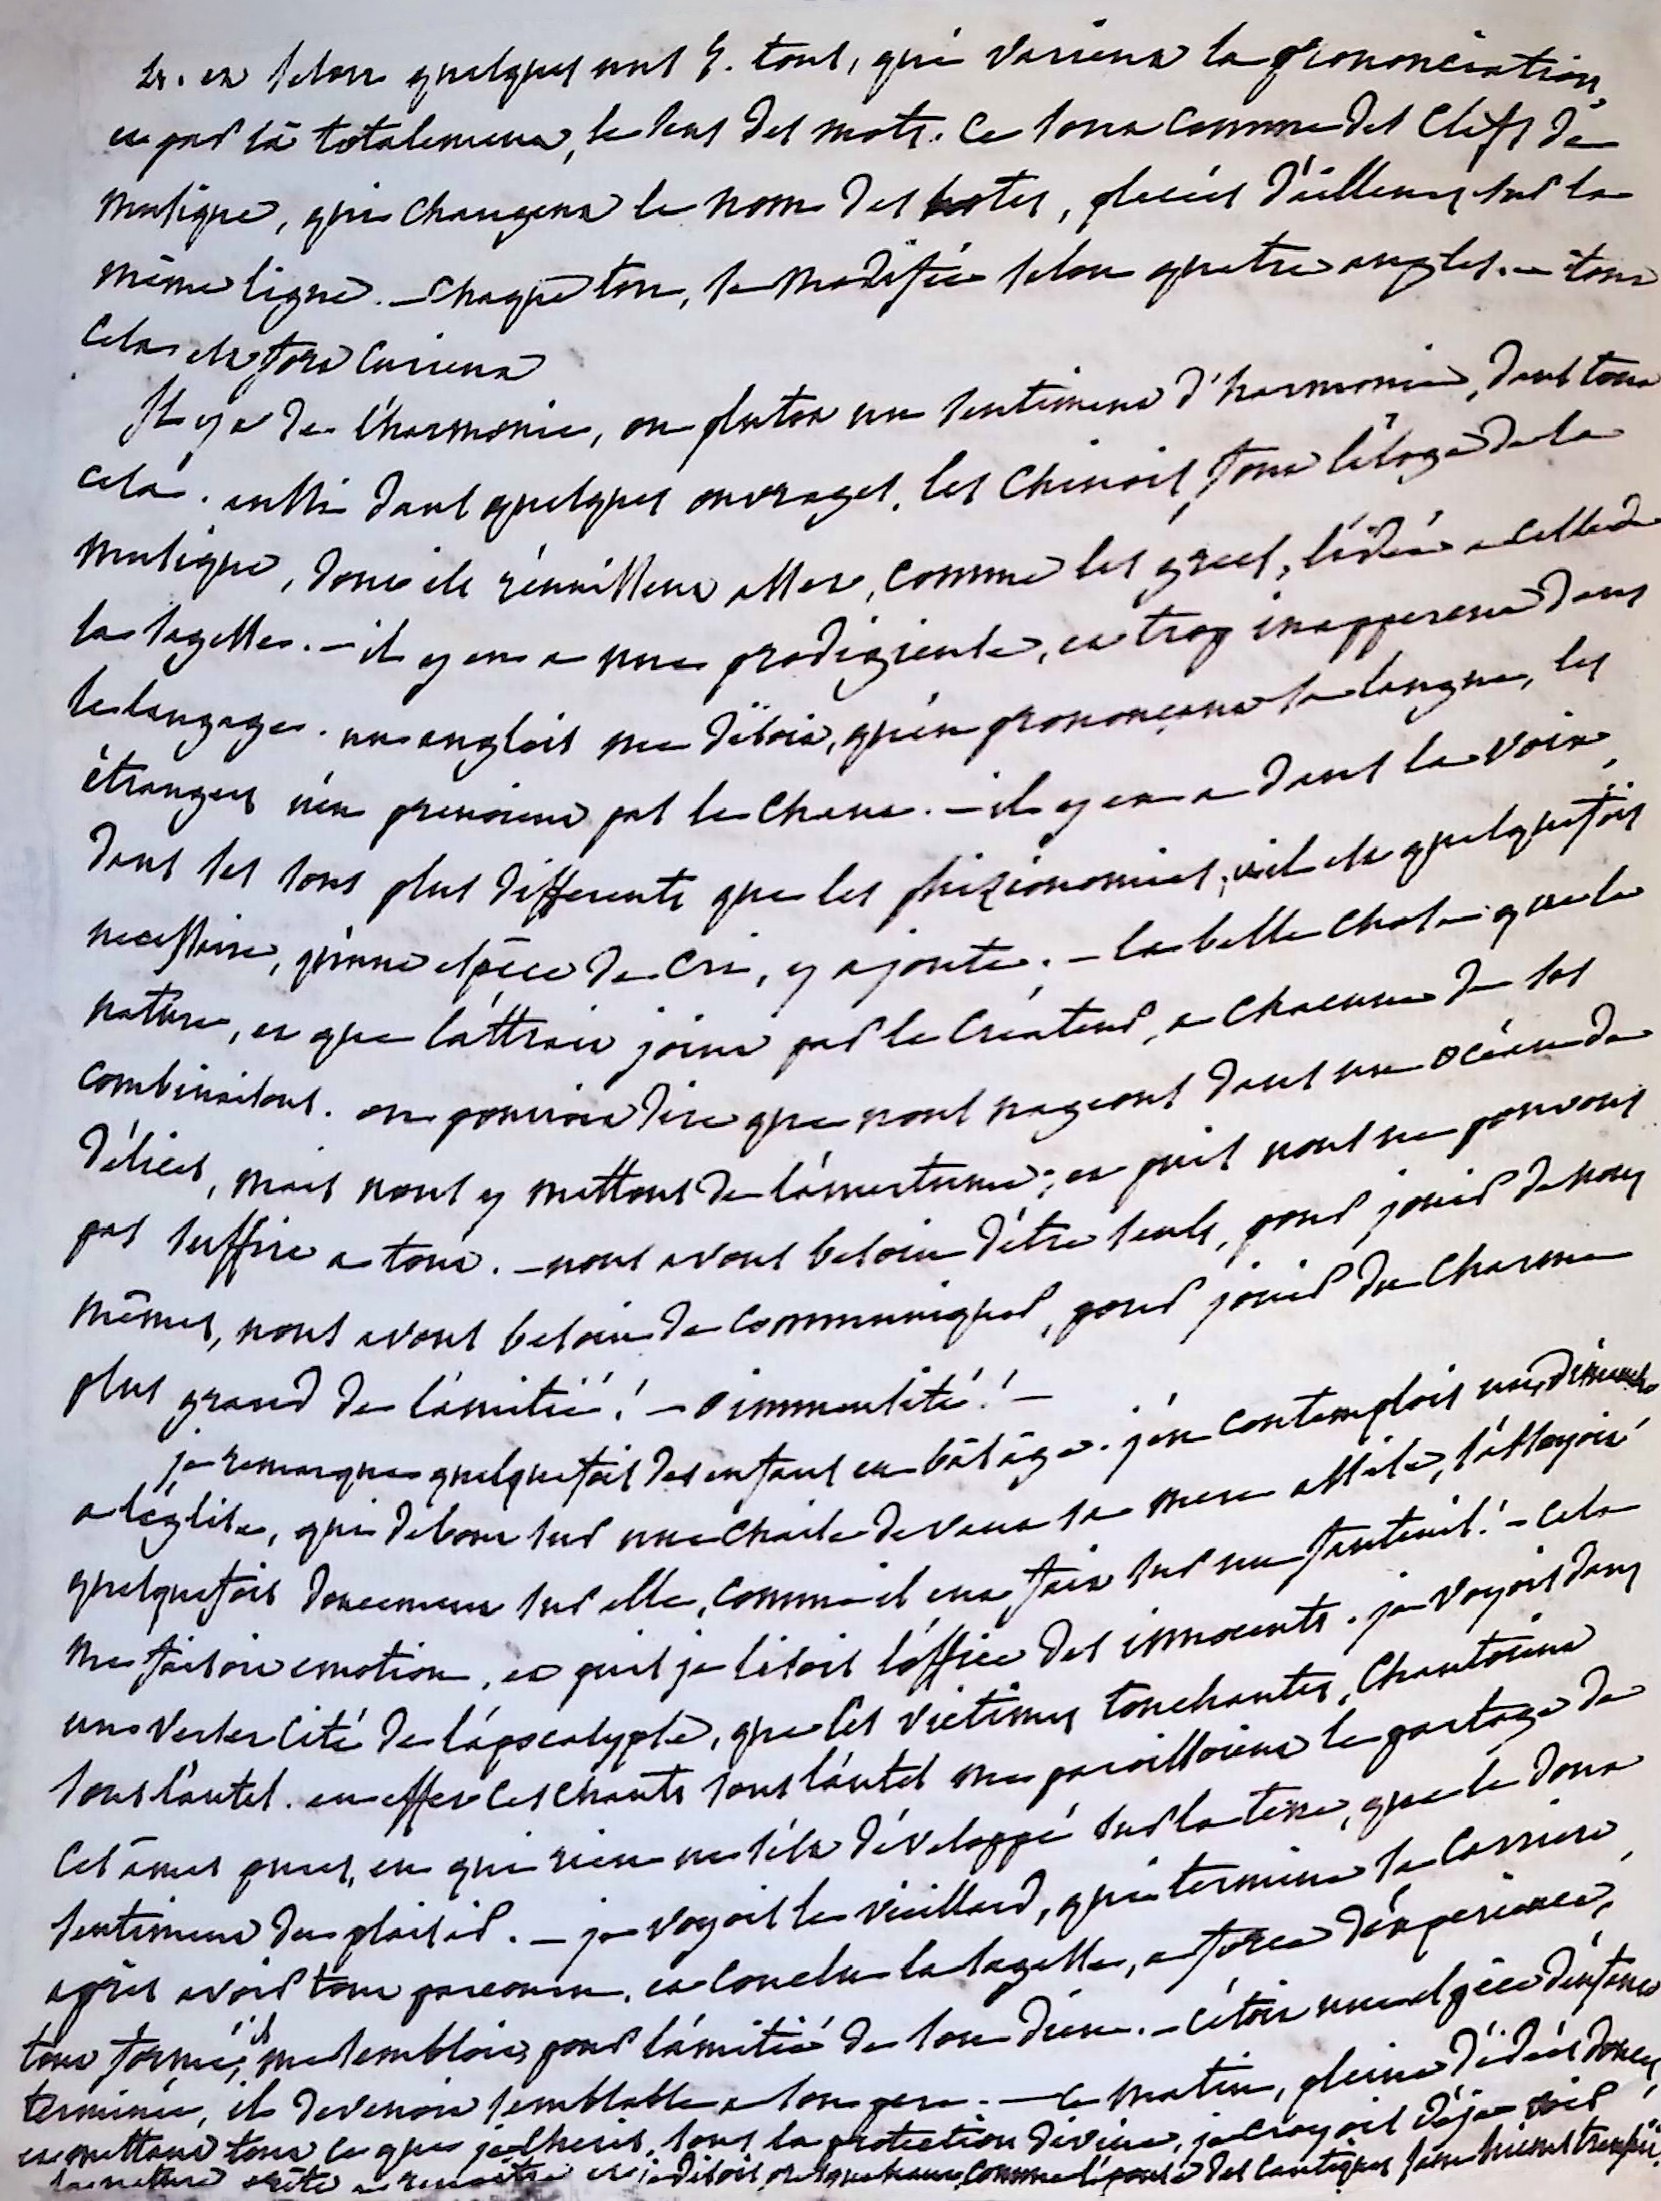 et selon quelques uns 5. tons, qui varient la prononciation,
et par là totalement, le sens des mots. ce sont comme des clefs de
musique, qui changent le nom des notes, placées d'ailleurs sur la
même ligne. – chaque ton, se modifie selon quatre angles. – tout
cela est fort curieux
Il y a de l'harmonie, ou plutot un sentiment d'harmonie, dans tout
cela. aussi dans quelques ouvrages, les Chinois, font l'éloge de la
musique, dont ils réunissent assez, comme les grecs, l'idée a celle de
la sagesse. – il y en a une prodigieuse, et trop inapperçue dans
le langage. un anglois me disoit, qu'en prononçant sa langue, les
étrangers n'en prenoient pas le chant. – il y en a dans la voix,
dans les sons plus differents que les phizionomies, et il est quelquefois
necessaire, qu'une espèce de cri, y ajoute. – la belle chose que la
nature, et que l'attrait joint par le Créateur, a chacune de ses
combinaisons. on pourroit dire que nous nageons dans un océan de
délices, mais nous y mettons de l'amertume; et puis nous ne pouvons
pas suffire a tout. – nous avons besoin d'être seuls, pour jouir de nous
mêmes, nous avons besoin de communiquer, pour jouir du charme
plus grand de l'amitié! – o immensité! –
je remarque quelquefois des enfans en bas âge. j'en contemplois un, dimanche
a l'église, qui debout sur une chaise devant sa mere assise, s'asseyoit
quelquefois doucement sur elle, comme il eut fait sur un fauteuil! – cela
me faisoit emotion, et puis je lisois l'office des innocents. je voyois dans
un verset cité de l'apocalypse, que ces victimes touchantes, chantoient
sous l'autel. en effet ces chants sous l'autel me paroissoient le partage de
ces âmes pures, en qui rien ne s'est développé sur la terre, que le doux
sentiment du plaisir. – je voyois le vieillard, qui termine sa carriere,
après avoir tout parcouru, et conclu la sagesse, a force d'expérience,
tout formé, il me sembloit, pour l'amitié de son dieu. – c'étoit une espèce d'enfance
terminée, il devenoit semblable a son pere. – ce matin, pleine d'idées douces,
et mettant tout ce que je cheris, sous la protection divine, je croyois déja voir
la nature prête a renaître et je disois presque haut comme l'épouse des cantiques